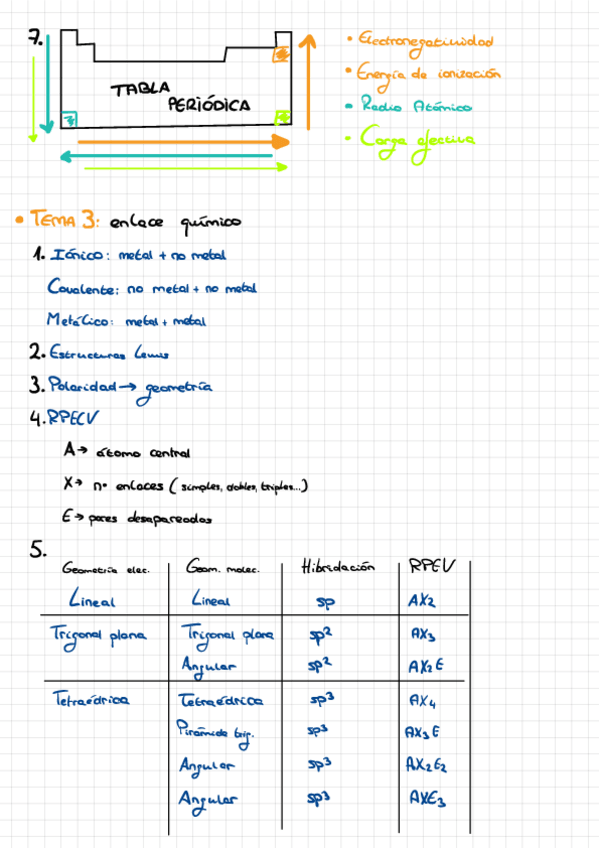 7.
TABLA
PERIÓDICA
• Electronegatividad
• Energía de ionización
• Radio Atómico
• Carga efectiva
• TEMA 3: enlace químico
1. Iónico: metal + no metal
Covalente: no metal + no metal
Metálico: metal + metal
2. Estructuras Lewis
3. Polaridad → geometría
4. RPECV
A → átomo central
X → nº enlaces (simples, dobles, triples...)
E → pares desapareados
5.
Geometría elec. Geom. molec. Hibridación RPEV
Lineal Lineal sp AX2
Trigonal plana Trigonal plana sp² AX3
Angular sp² AX2E
Tetraédrica Tetraédrica sp³ AX4
Pirámide trig. sp³ AX3E
Angular sp³ AX2E2
Angular sp3 AXE3